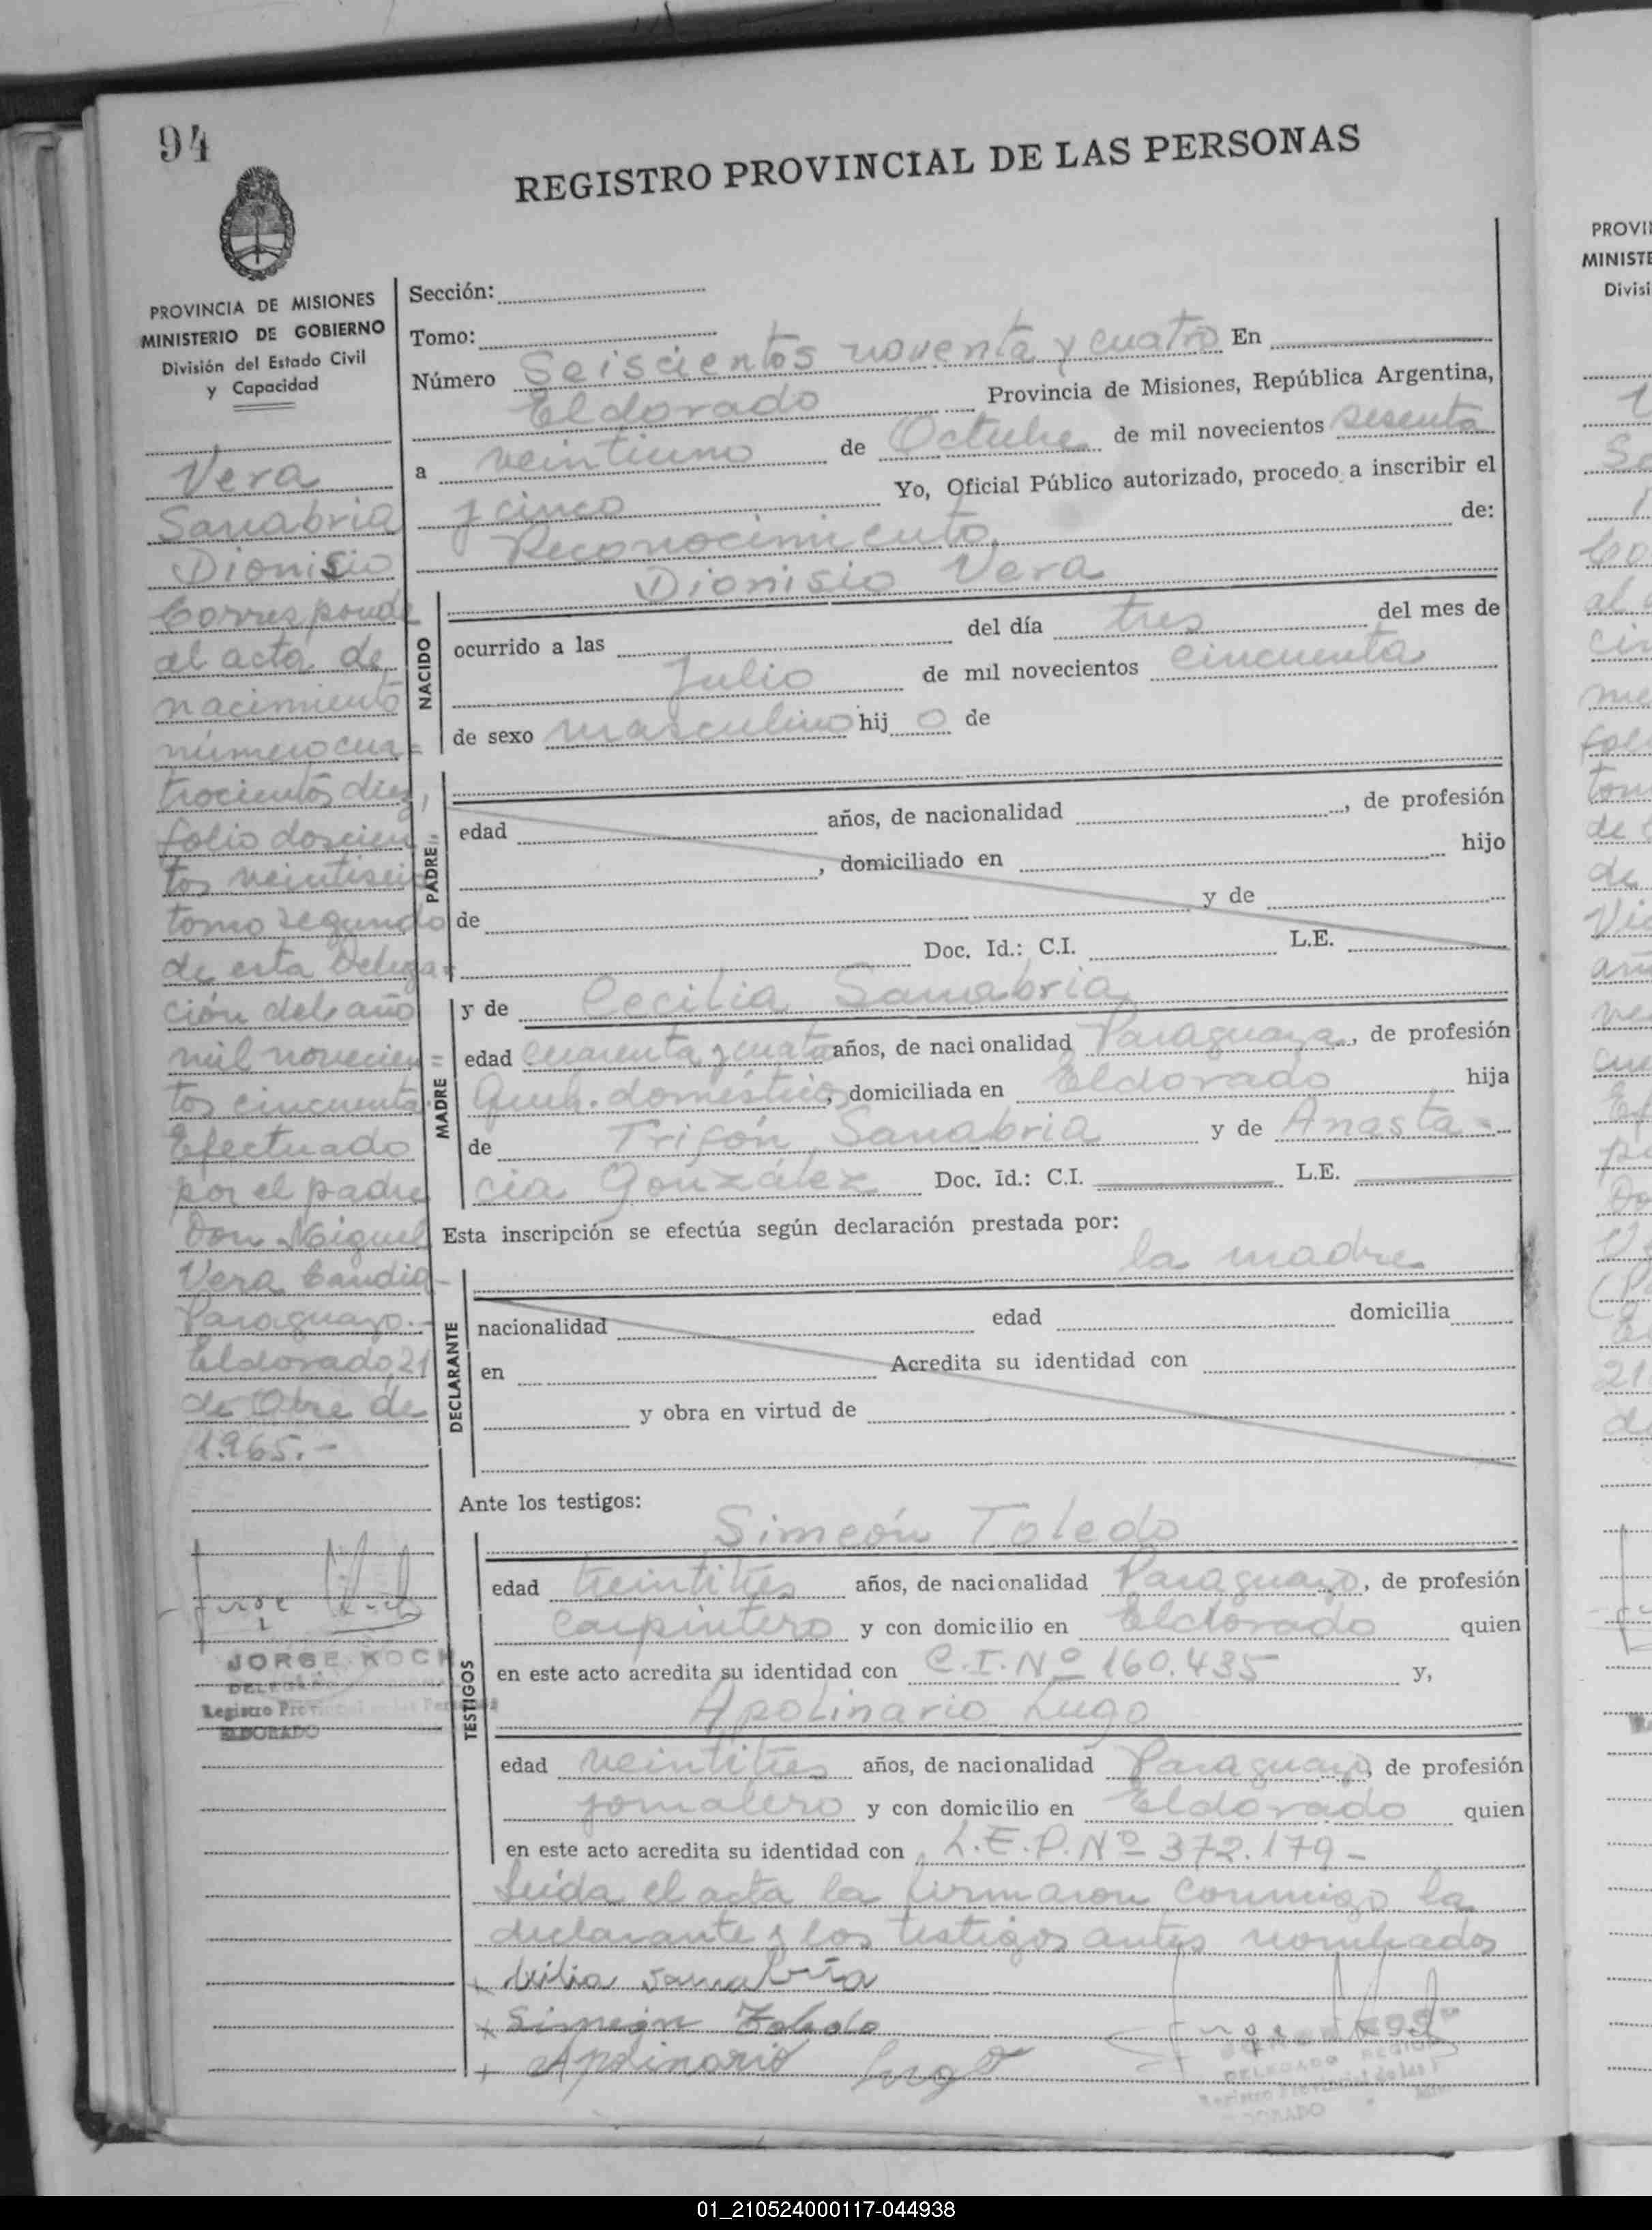 94
REGISTRO PROVINCIAL DE LAS PERSONAS
PROVINCIA DE MISIONES
MINISTERIO DE GOBIERNO
División del Estado Civil
y Capacidad
Vera
Sanabria
Dionisio
Corresponde
al acta de
nacimiento
número cua=
trocientos diez,
folio doscien=
tos veintiseis
tomo segundo
de esta Delega=
ción del año
mil novecien=
tos cincuenta.
Efectuado
por el padre
Don Miguel
Vera Candia-
Paraguayo.-
Eldorado, 21
de Obre de
1.965.-
JORGE KOCH
Registro Provincial de las Personas
ELDORADO
Sección:
Tomo:
Número Seiscientos noventa y cuatro En
Eldorado Provincia de Misiones, República Argentina,
a veintiuno de Octubre de mil novecientos sesenta
y cinco Yo, Oficial Público autorizado, procedo a inscribir el
Reconocimiento de:
NACIDO
Dionisio Vera
ocurrido a las del día tres del mes de
Julio de mil novecientos cincuenta
de sexo masculino hij o de
PADRE
edad años, de nacionalidad , de profesión
, domiciliado en hijo
de y de
Doc. Id.: C.I. L.E.
MADRE
y de Cecilia Sanabria
edad cuarenta y cuatro años, de nacionalidad Paraguaya, de profesión
Queh. domésticos, domiciliada en Eldorado hija
de Trifón Sanabria y de Anasta-
cia González Doc. Id.: C.I. L.E.
Esta inscripción se efectúa según declaración prestada por:
la madre
DECLARANTE
nacionalidad edad domicilia
en Acredita su identidad con
y obra en virtud de
Ante los testigos:
TESTIGOS
Simeón Toledo
edad treintitres años, de nacionalidad Paraguayo, de profesión
Carpintero y con domicilio en Eldorado quien
en este acto acredita su identidad con C.I. Nº 160.435 y,
Apolinario Lugo
edad veintitres años, de nacionalidad Paraguayo, de profesión
jornalero y con domicilio en Eldorado quien
en este acto acredita su identidad con L.E.P. Nº 372.179-
Leída el acta la firmaron conmigo la
declarante y los testigos antes nombrados
Cecilia Sanabria
x Simeón Toledo
+ Apolinario Lugo
DELEGADO REGIONAL
Registro Provincial de las P
ELDORADO
PROVI
MINISTE
Divisi
01_210524000117-044938